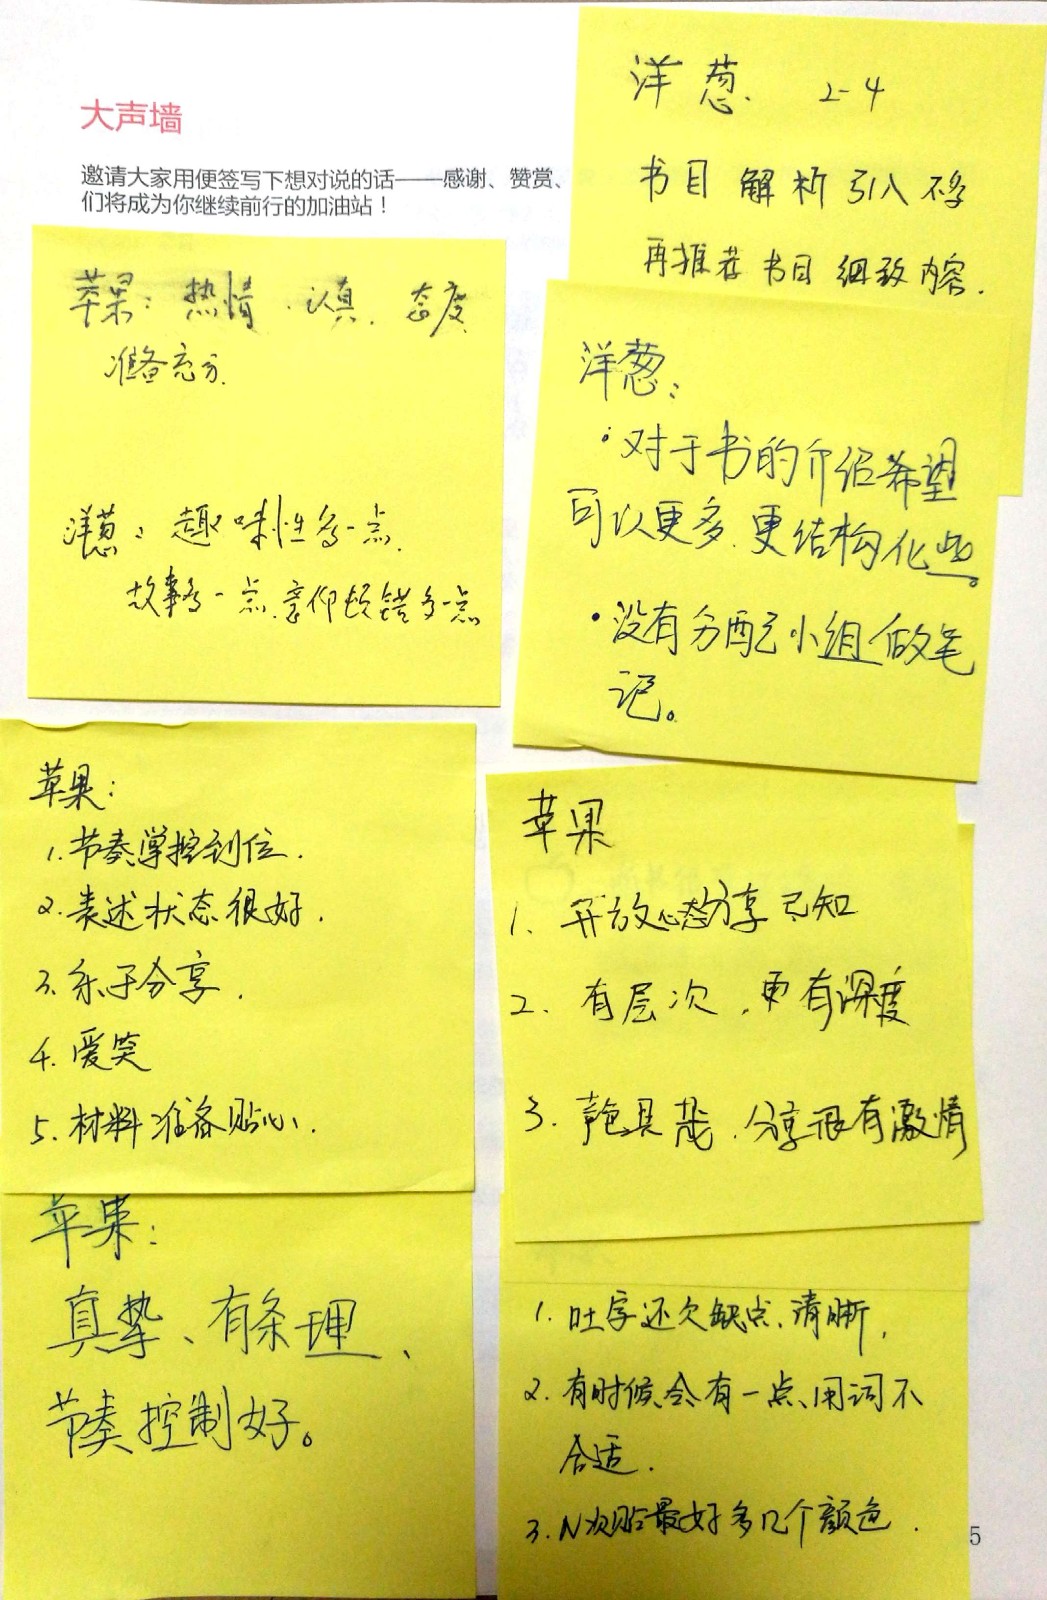 大声墙
邀请大家用便签写下想对说的话——感谢、赞赏、
们将成为你继续前行的加油站！
洋葱. 2-4
书目解析引入不多
再推荐书目细致内容.
苹果：热情、认真、态度
准备充分.
洋葱：趣味性多一点.
故事多一点.抑扬顿错多一点
洋葱：
·对于书的介绍希望
可以更多、更结构化些。
·没有分配已小组做笔
记。
苹果：
1.节奏掌控到位.
2.表述状态很好.
3.乐于分享.
4.爱笑
5.材料准备贴心.
苹果
1. 开放心态分享已知
2. 有层次、更有深度
3. 分享很有激情
苹果：
真挚、有条理、
节奏控制好。
1.吐字还欠缺点清晰,
2.有时候会有一点用词不
合适.
3.N次贴最好多几个颜色.
5